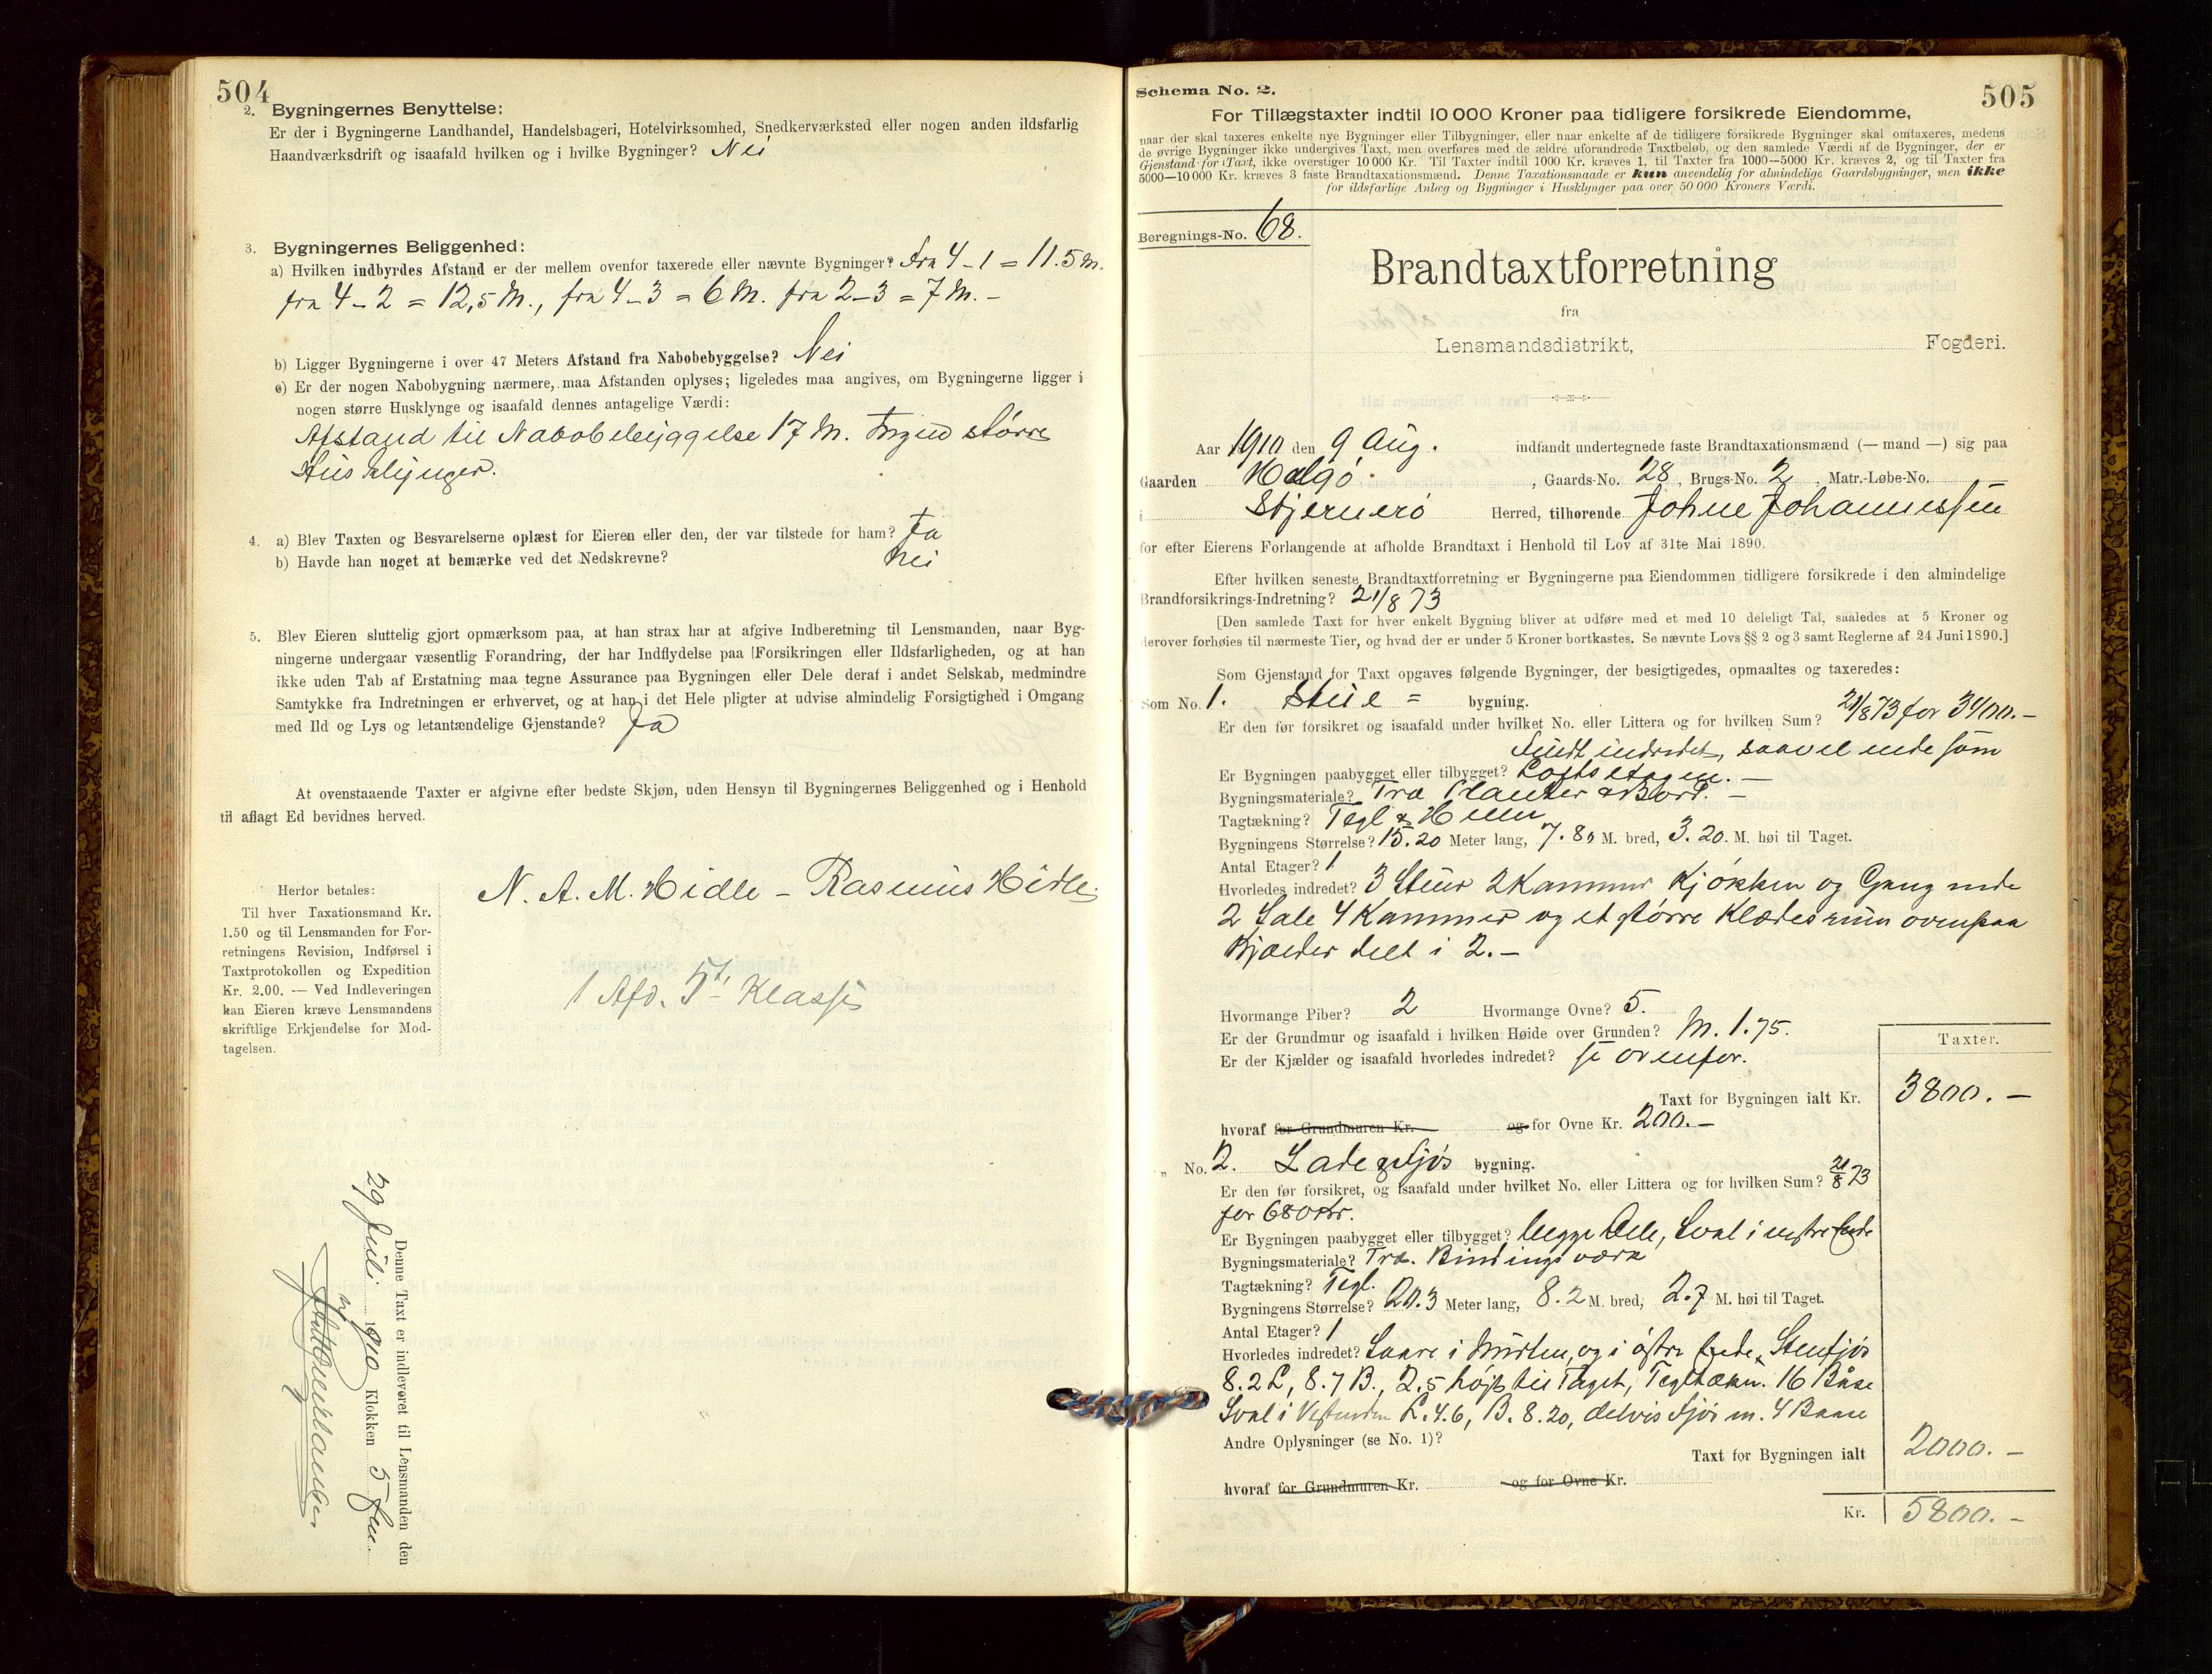 504
2. Bygningernes Benyttelse:
Er der i Bygningerne Landhandel, Handelsbageri, Hotelvirksomhed, Snedkerværksted eller nogen anden ildsfarlig
Haandværksdrift og isaafald hvilken og i hvilke Bygninger? Nei
3. Bygningernes Beliggenhed:
a) Hvilken indbyrdes Afstand er der mellem ovenfor taxerede eller nævnte Bygninger? Fra 4-1 = 11.5 M.
fra 4-2 = 12,5 M., fra 4-3 = 6 M. fra 2-3 = 7 M. -
b) Ligger Bygningerne i over 47 Meters Afstand fra Nabobebyggelse? Nei
c) Er der nogen Nabobygning nærmere, maa Afstanden oplyses; ligeledes maa angives, om Bygningerne ligger i
nogen større Husklynge og isaafald dennes antagelige Værdi:
Afstand til Nabobebyggelse 17 M. Ingen større
Husklynger.
4. a) Blev Taxten og Besvarelserne oplæst for Eieren eller den, der var tilstede for ham? Ja
b) Havde han noget at bemærke ved det Nedskrevne? Nei
5. Blev Eieren sluttelig gjort opmærksom paa, at han strax har at afgive Indberetning til Lensmanden, naar Byg-
ningerne undergaar væsentlig Forandring, der har Indflydelse paa Forsikringen eller Ildsfarligheden, og at han
ikke uden Tab af Erstatning maa tegne Assurance paa Bygningen eller Dele deraf i andet Selskab, medmindre
Samtykke fra Indretningen er erhvervet, og at han i det Hele pligter at udvise almindelig Forsigtighed i Omgang
med Ild og Lys og letantændelige Gjenstande? Ja
At ovenstaaende Taxter er afgivne efter bedste Skjøn, uden Hensyn til Bygningernes Beliggenhed og i Henhold
til aflagt Ed bevidnes herved.
N. A. M. Hidle - Rasmus Hidle.
Herfor betales:
Til hver Taxationsmand Kr.
1.50 og til Lensmanden for For-
retningens Revision, Indførsel i
Taxtprotokollen og Expedition
Kr. 2.00. — Ved Indleveringen
kan Eieren kræve Lensmandens
skriftlige Erkjendelse for Mod-
tagelsen.
1 Afd. 5te Klasse
Denne Taxt er indleveret til Lensmanden den
29 Juli 1910 Klokken 5 Em.
505
Schema No. 2.
For Tillægstaxter indtil 10 000 Kroner paa tidligere forsikrede Eiendomme,
naar der skal taxeres enkelte nye Bygninger eller Tilbygninger, eller naar enkelte af de tidligere forsikrede Bygninger skal omtaxeres, medens
de øvrige Bygninger ikke undergives Taxt, men overføres med de ældre uforandrede Taxtbeløb, og den samlede Værdi af de Bygninger, der er
Gjenstand for Taxt, ikke overstiger 10 000 Kr. Til Taxter indtil 1000 Kr. kræves 1, til Taxter fra 1000—5000 Kr. kræves 2, og til Taxter fra
5000—10 000 Kr. kræves 3 faste Brandtaxationsmænd. Denne Taxationsmaade er kun anvendelig for almindelige Gaardsbygninger, men ikke
for ildsfarlige Anlæg og Bygninger i Husklynger paa over 50 000 Kroners Værdi.
Beregnings-No. 68.
Brandtaxtforretning
fra
Lensmandsdistrikt, Fogderi.
Aar 1910 den 9 Aug. indfandt undertegnede faste Brandtaxationsmænd (— mand —) sig paa
Gaarden Helgø , Gaards-No. 28, Brugs-No. 2, Matr.-Løbe-No.
i Stjernerø Herred, tilhørende Johne Johannessen
for efter Eierens Forlangende at afholde Brandtaxt i Henhold til Lov af 31te Mai 1890.
Efter hvilken seneste Brandtaxtforretning er Bygningerne paa Eiendommen tidligere forsikrede i den almindelige
Brandforsikrings-Indretning? 21/8 73
[Den samlede Taxt for hver enkelt Bygning bliver at udføre med et med 10 deleligt Tal, saaledes at 5 Kroner og
derover forhøies til nærmeste Tier, og hvad der er under 5 Kroner bortkastes. Se nævnte Lovs §§ 2 og 3 samt Reglerne af 24 Juni 1890.]
Som Gjenstand for Taxt opgaves følgende Bygninger, der besigtigedes, opmaaltes og taxeredes:
Som No. 1. Stue = bygning.
Er den før forsikret og isaafald under hvilket No. eller Littera og for hvilken Sum? 21/8 73 for 3400.-
Fuldt indredet, saavel nede som
Er Bygningen paabygget eller tilbygget? Loftsetagen. -
Bygningsmateriale? Træ Planker & Bord. -
Tagtækning? Tegl & Heller
Bygningens Størrelse? 15.20 Meter lang, 7.80 M. bred, 3.20. M. høi til Taget.
Antal Etager? 1
Hvorledes indredet? 3 Stuer 2 Kammer Kjøkken og Gang nede
2 Sale 4 Kammer og et større Klædesrum ovenpaa
Kjælder delt i 2. -
Hvormange Piber? 2 Hvormange Ovne? 5.
Er der Grundmur og isaafald i hvilken Høide over Grunden? M. 1.75.
Er der Kjælder og isaafald hvorledes indredet? se ovenfor.
Taxter.
Taxt for Bygningen ialt Kr. 3800. -
hvoraf for Grundmuren Kr. og for Ovne Kr. 200. -
„ No. 2. Lade & Fjøs bygning.
Er den før forsikret, og isaafald under hvilket No. eller Littera og for hvilken Sum? 21/8 73
for 680 Kr.
Er Bygningen paabygget eller tilbygget? begge Dele, Sval i vestre Ende
Bygningsmateriale? Træ. Bindingsværk
Tagtækning? Tegl.
Bygningens Størrelse? 20.3 Meter lang, 8.2 M. bred, 2.7 M. høi til Taget.
Antal Etager? 1
Hvorledes indredet? Laave i Midten, og i østre Ende, Stenfjøs
8.2 L, 8.7 B., 2.5 højt til Taget, Tegltækn. 16 Båse
Sval i Vestenden L. 4.6, B. 8.20, delvis Fjøs m. 4 Baase
Andre Oplysninger (se No. 1)?
Taxt for Bygningen ialt 2000. -
hvoraf for Grundmuren Kr. og for Ovne Kr.
Kr. 5800. -